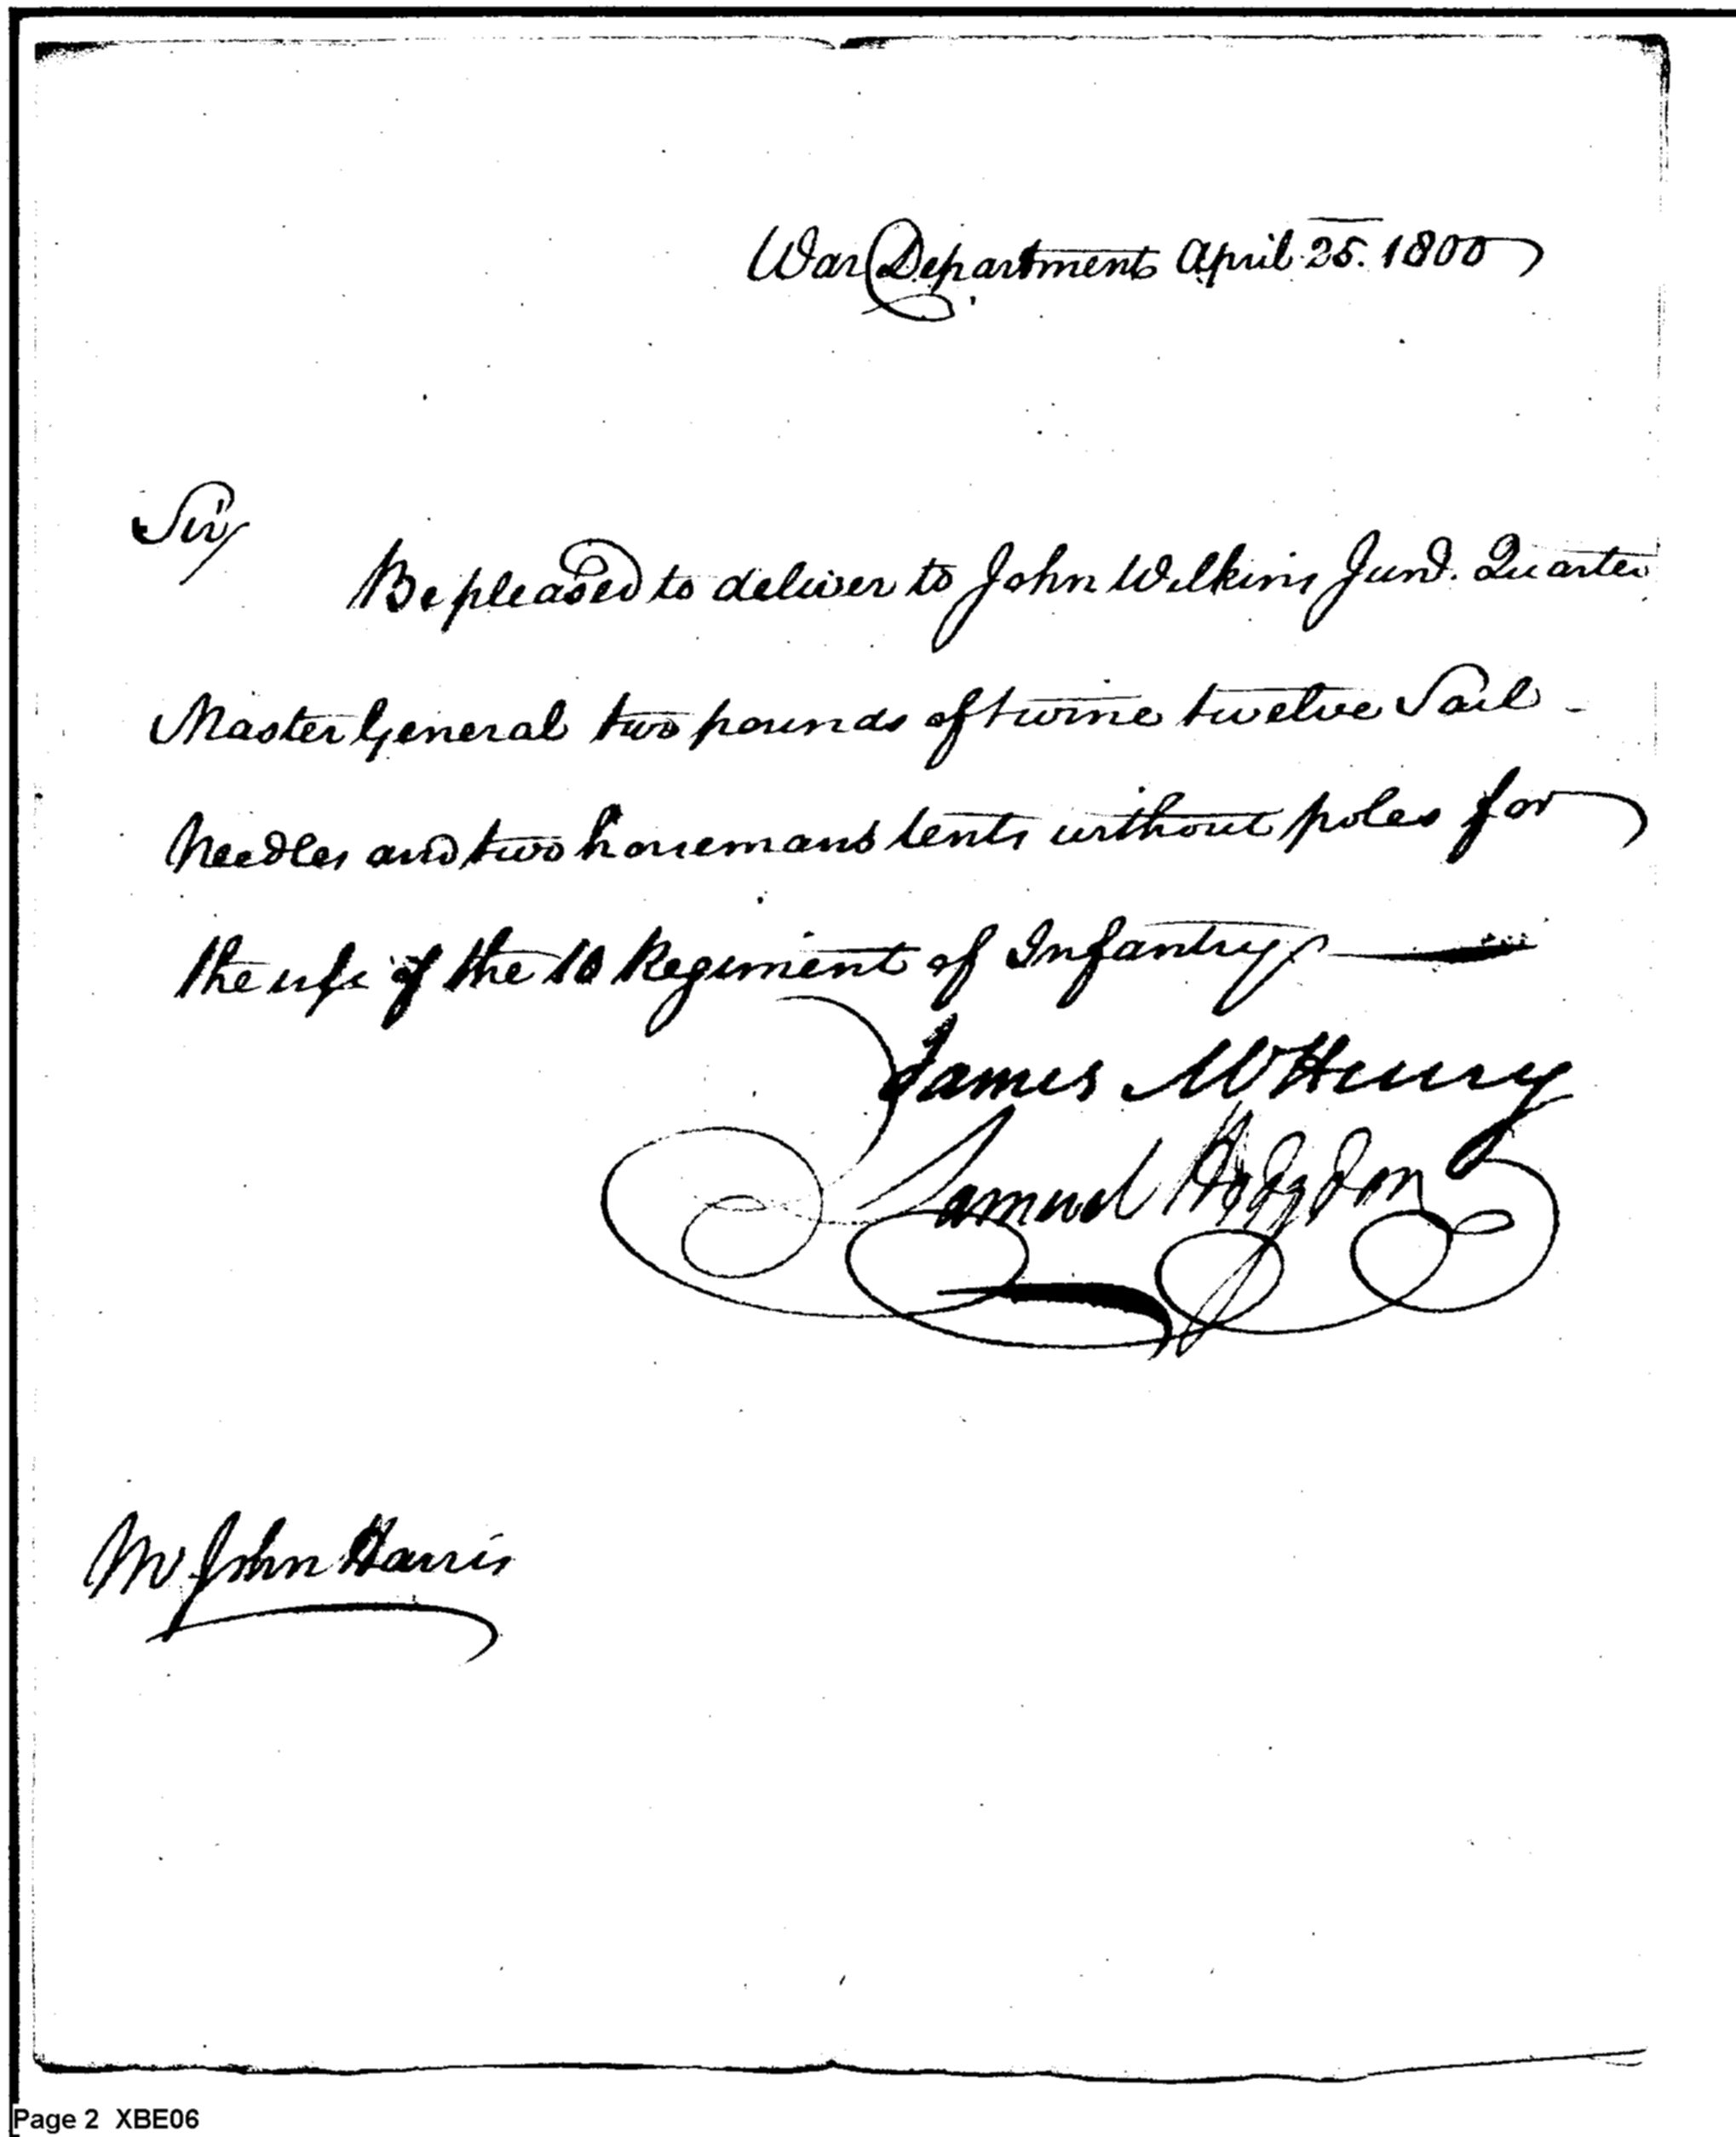 War Department April 25. 1800
Sir
Be pleased to deliver to John Wilkins Junr. Quarter
Master General two pounds of twine twelve Sail -
Needles and two horsemans tents without poles for
the use of the 10 Regiment of Infantry
James McHenry
Samuel Hodgdon
Mr John Harris
Page 2 XBE06